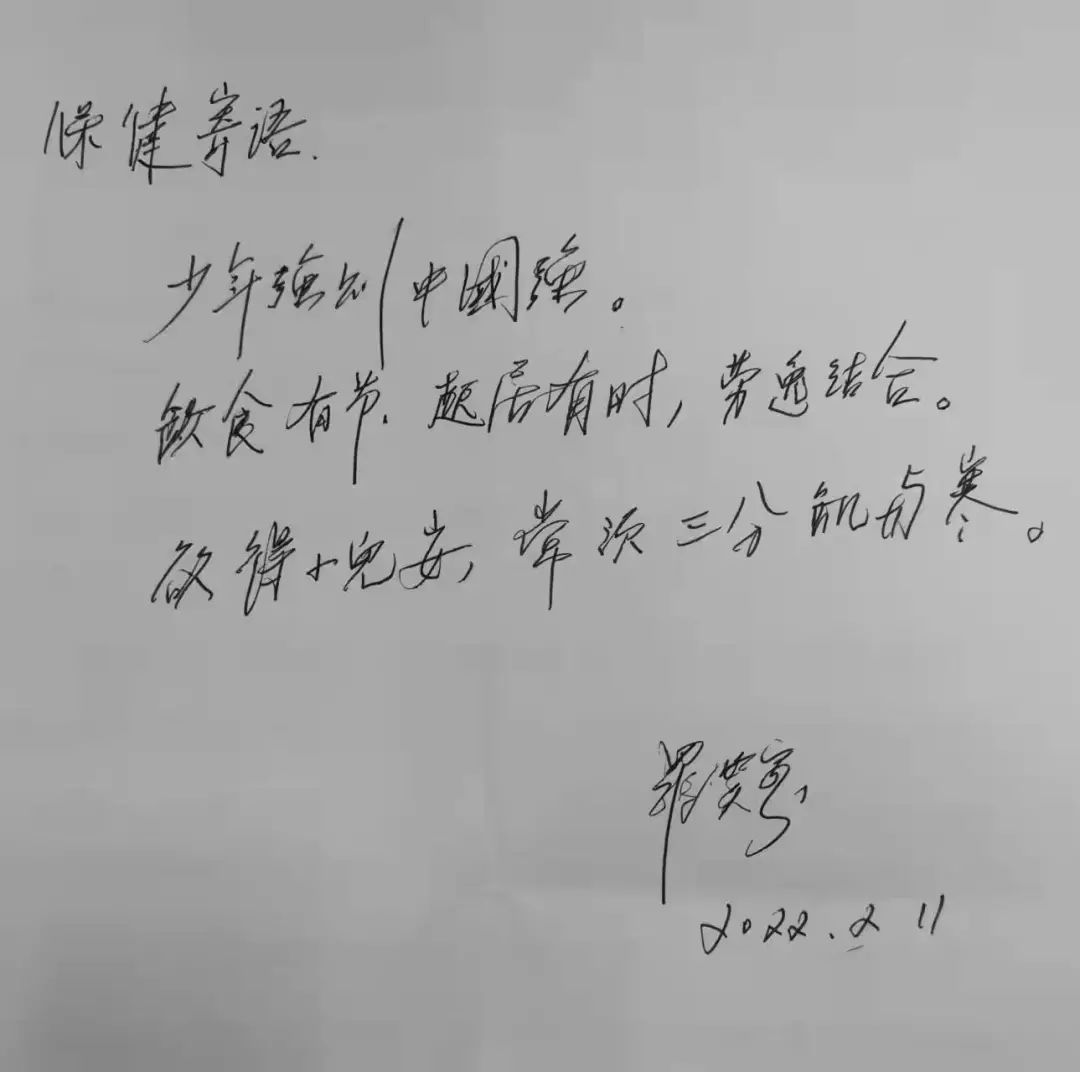 保健寄语.
少年強则中國強。
飲食有节、起居有时,劳逸结合。
欲得小兒安,常须三分飢与寒。
羅
2022.2 11